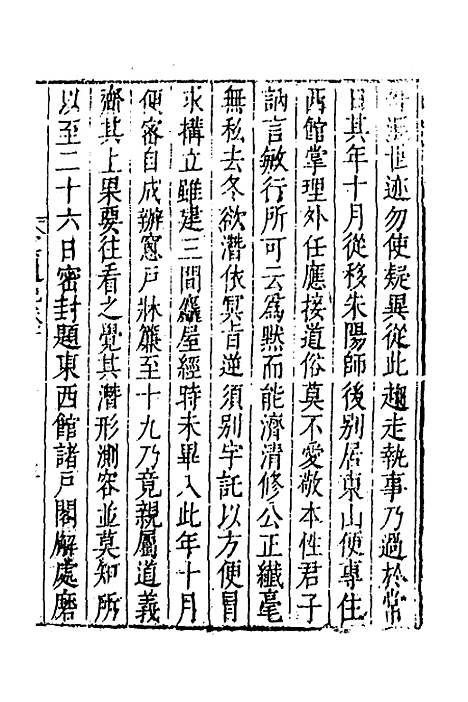 世迹勿使疑異從此趨走執事乃過於常
日其年十月從移朱陽師後別居東山便專住
西館掌理外任應接道俗莫不愛敬本性君子
訥言敏行所可云為黙而能濟清修公正纎毫
無私去冬欲潛依冥旨逆須别宇託以方便冐
求構立雖建三間麤屋經時未畢入此年十月
便密自成辦窻戸牀簾至十九乃竟親屬道義
齋其上果要往看之覺其潛形測容並莫知所
以至二十六日密封題東西館諸戸閣廨處磨